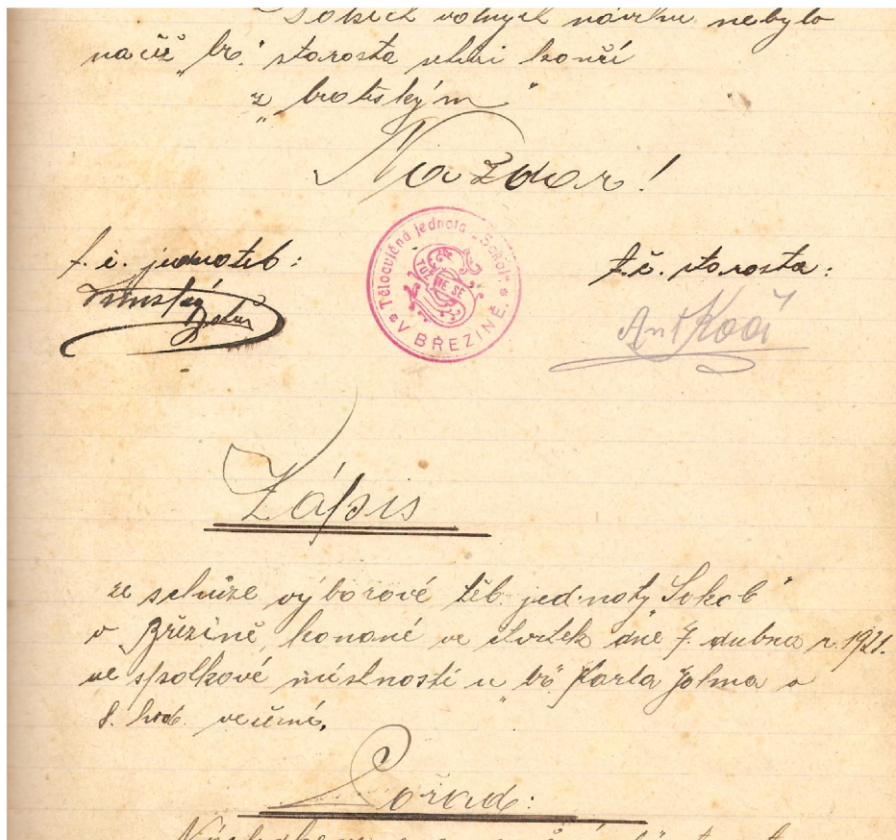 volných návrhů nebylo
načež „br.“ starosta schůzi končí
z „bratrským“
Nazdar!
t. č. jednatel:
t. č. starosta:
Tělocvičná jednota „Sokol“
V BŘEZINĚ
TUŽME SE
Ant Kočí
Zápis
ze schůze výborové těl. jednoty „Sokol“
v Březině, konané ve čtvrtek dne 7. dubna r. 1921.
ve spolkové místnosti u „br.“ Karla Jolma o
8. hod. večerní.
Pořad: